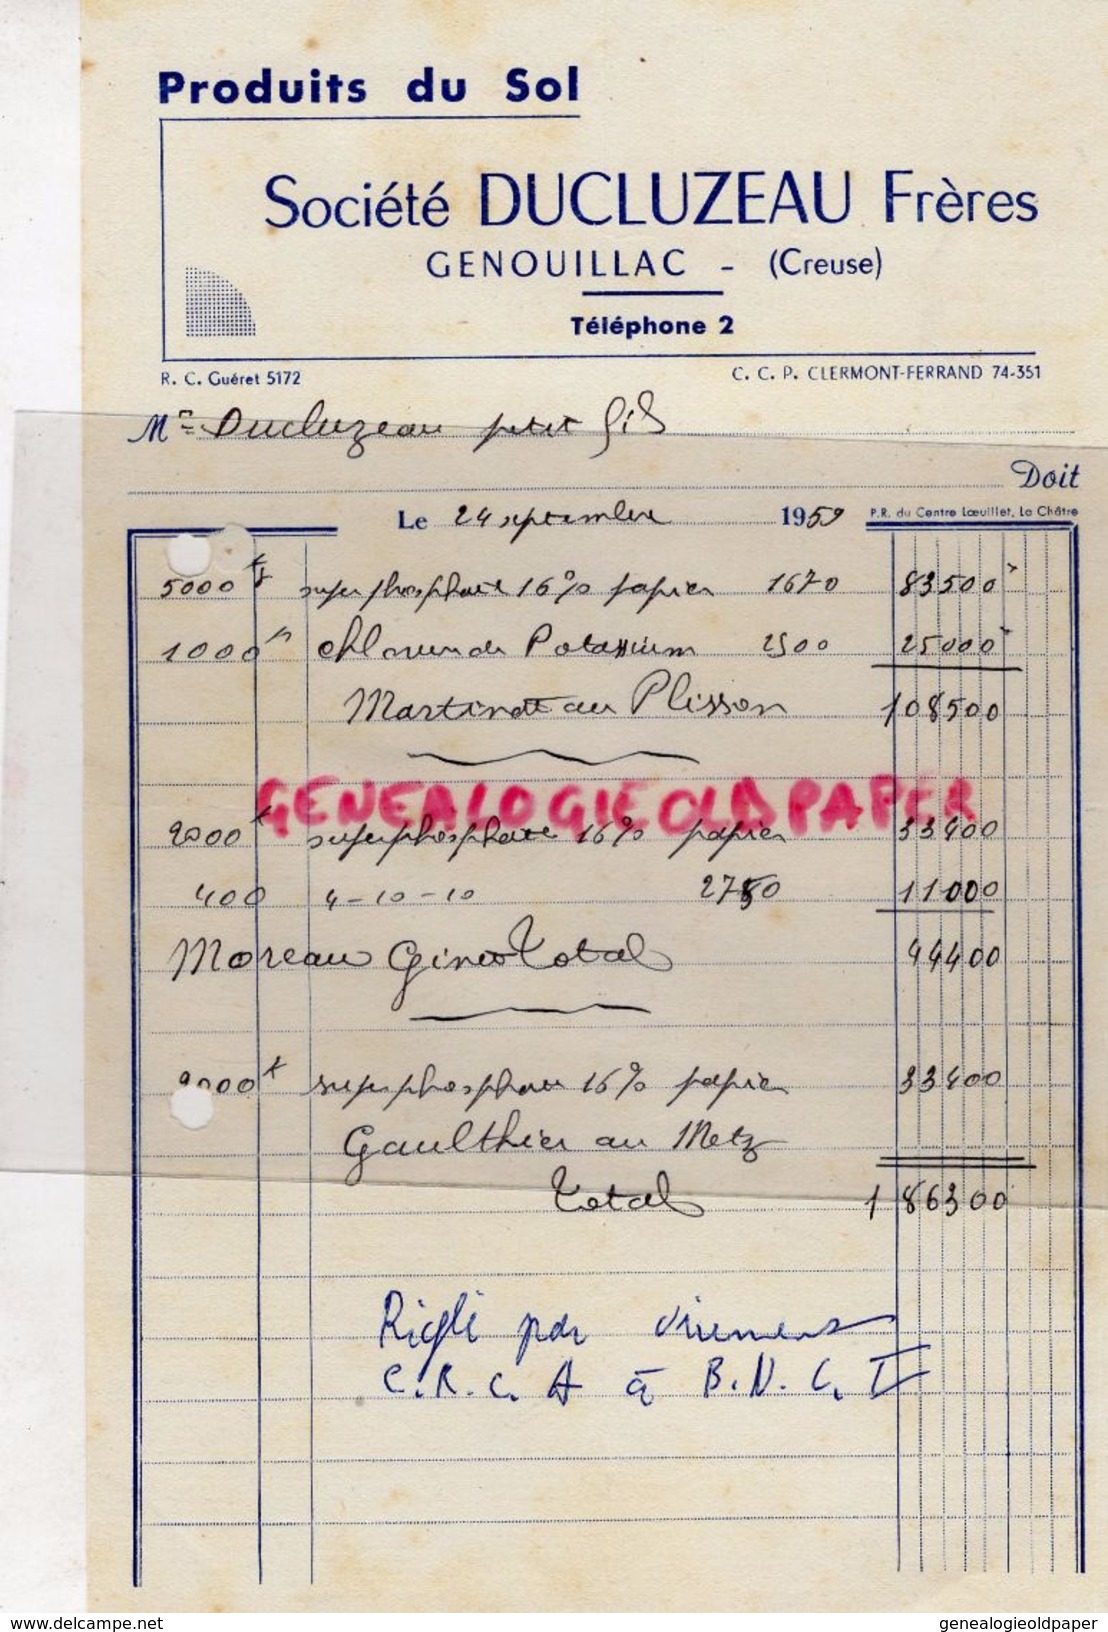 Produits du Sol
Société DUCLUZEAU Frères
GENOUILLAC - (Creuse)
Téléphone 2
R. C. Guéret 5172
C. C. P. CLERMONT-FERRAND 74-351
Mr Ducluzeau petit fils
Doit
Le 24 septembre 1959
P.R. du Centre Lœuillet, La Châtre
5000 k superphosphate 16% papier 1670 83500
1000 k Chlorure de Potassium 2500 25000
Martinet au Plisson 108500
GENEALOGIE OLD PAPER
2000 k superphosphate 16% papier 33400
400 4-10-10 2750 11000
Moreau Total 44400
2000 k superphosphate 16% papier 33400
Gaulthier au Metz
Total 186300
Réglé par virement
C.R.C.A à B.N.C.I
www.delcampe.net
genealogieoldpaper